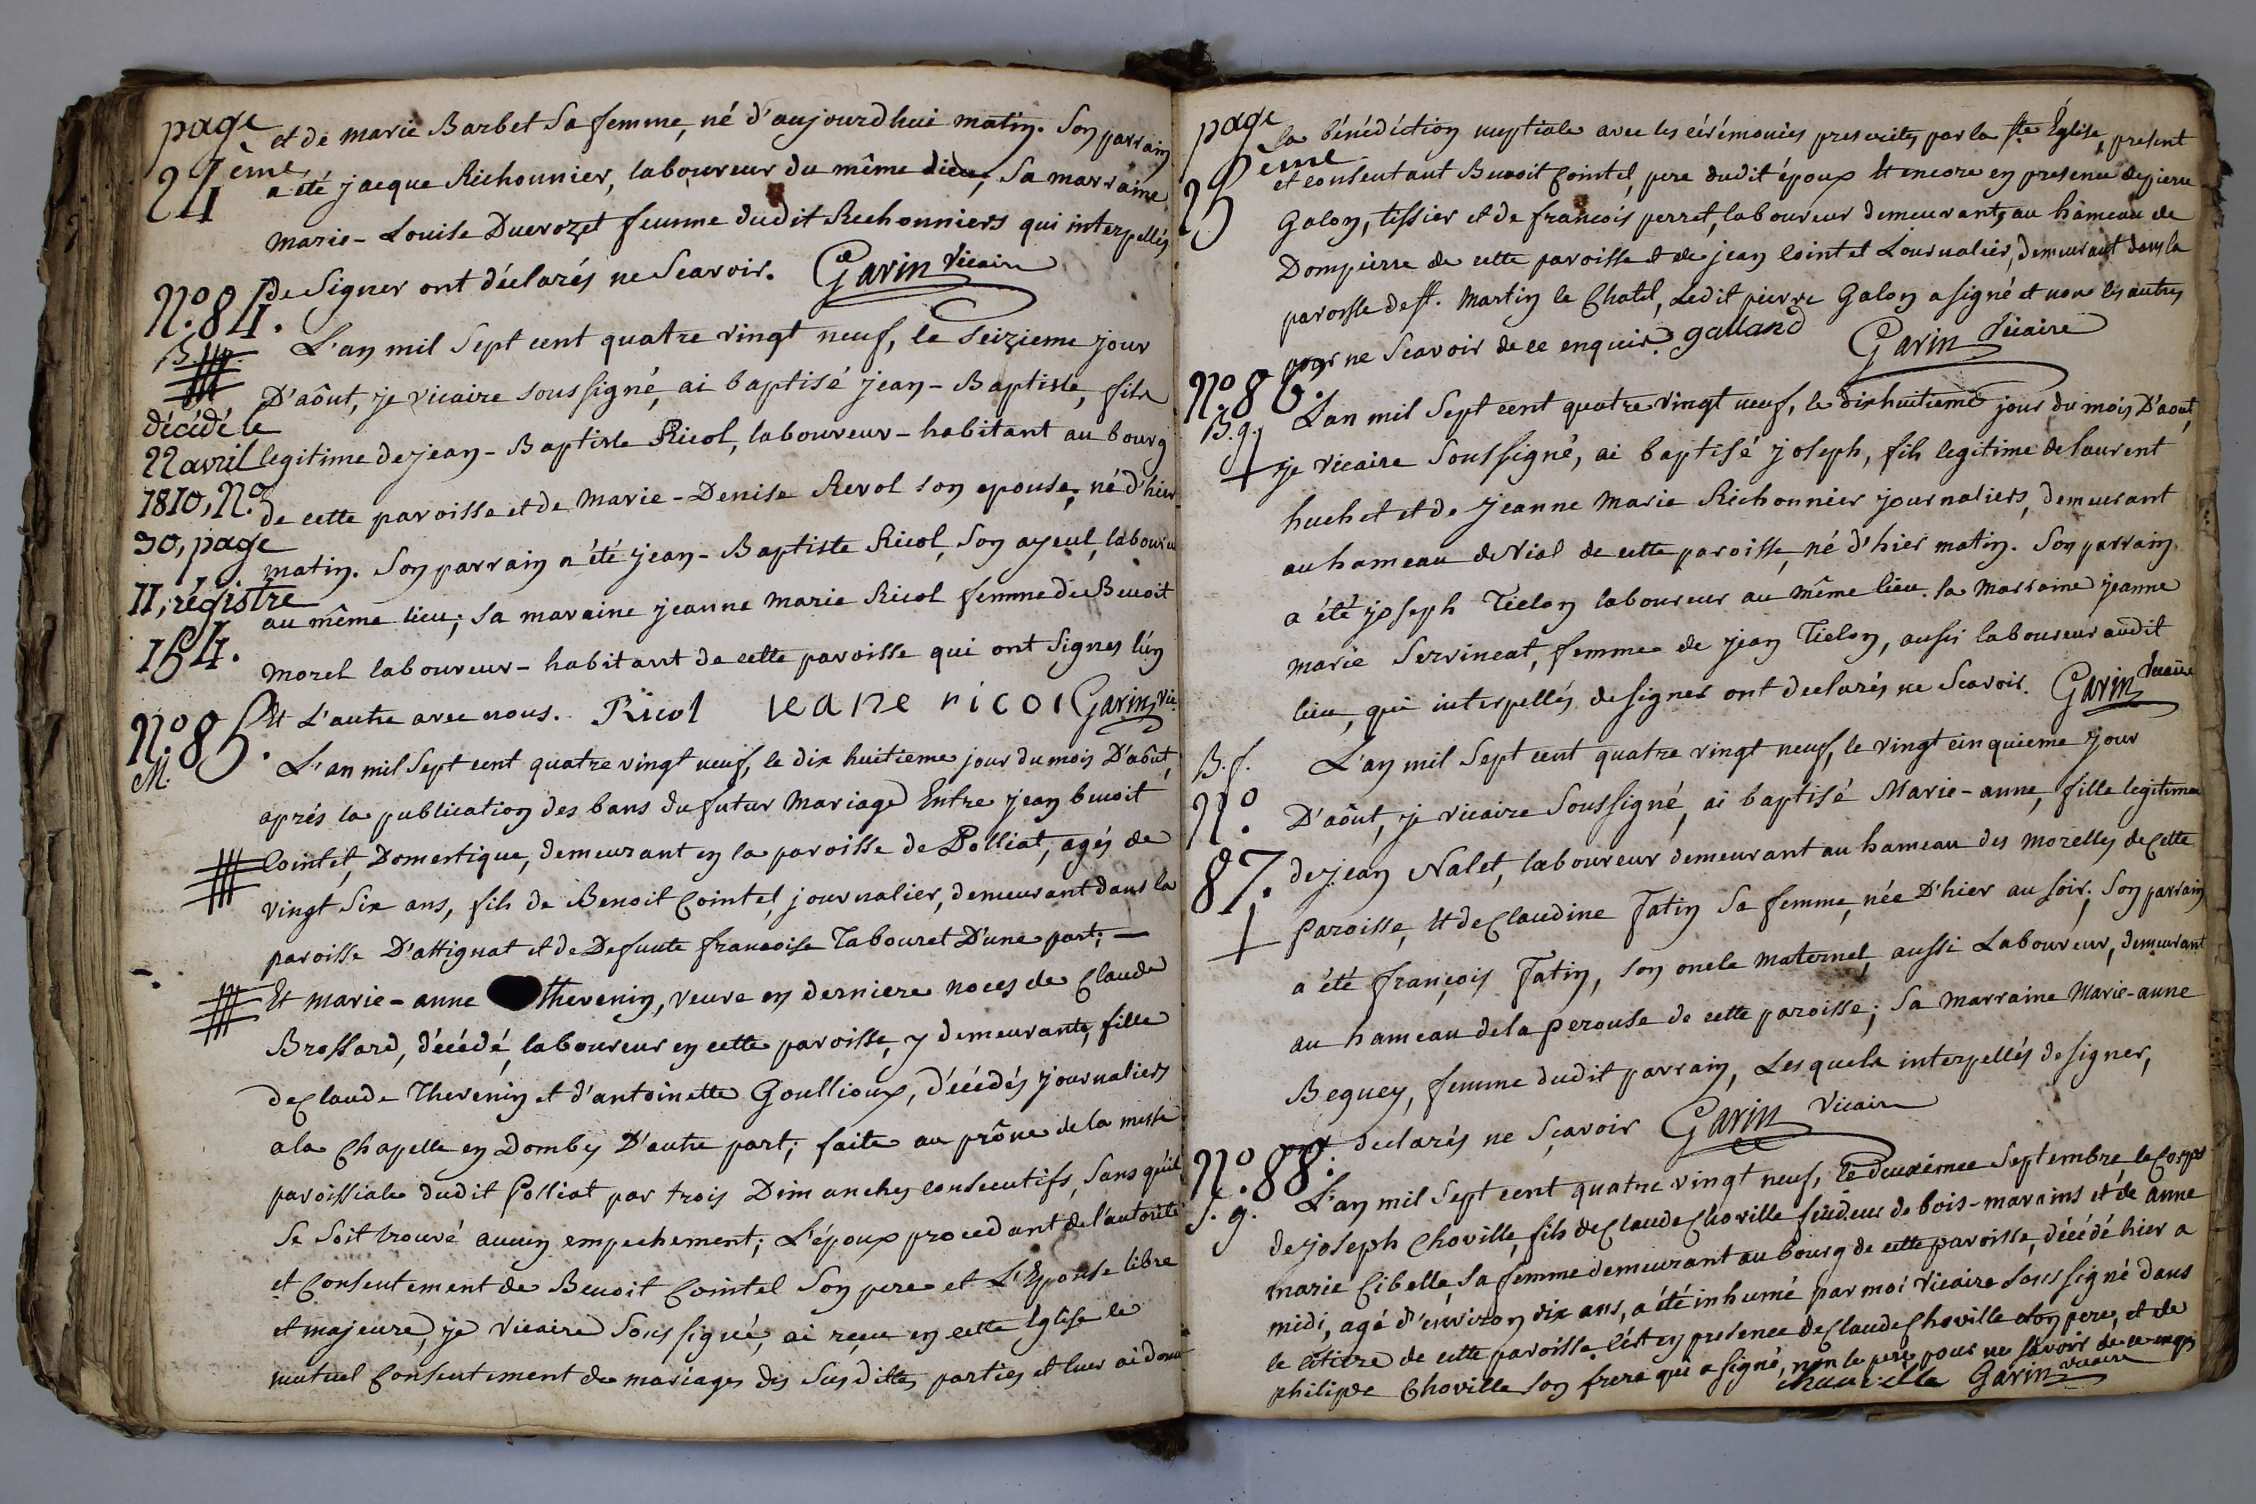 page
24ème
et de marie Barbet Sa femme, né d'aujourdhui matin. Son parrain
a été jacque Richonnier, laboureur du même dieu, Sa marraine
marie-Louise Duvrozet femme dudit Richonniers qui interpellés
de Signer ont déclarés ne Scavoir. Garin Vicaire
N.o 84.
B.
L'an mil Sept cent quatre vingt neuf, le Seizieme jour
D'aôut, je Vicaire soussigné, ai baptisé jean-Baptiste, fils
décédé le
22 avril
1810, N.o
30, page
II, régistre
154.
legitime de jean-Baptiste Ricol, laboureur-habitant au bourg
de cette paroisse et de Marie-Denise Revol son epouse, né d'hier
matin. Son parrain a été jean-Baptiste Ricol, Son ayeul, laboureu
au même lieu; Sa maraine jeanne Marie Ricol femme de Benoit
Morel laboureur-habitant de cette paroisse qui ont Signes l'un
Et L'autre avec nous. Ricol Jeane ricol Garin Vic.
N.o 85.
M.
L'an mil Sept cent quatre vingt neuf, le dix huitieme jour du mois D'aôut,
aprés la publication des bans du futur Mariage Entre jean benoit
Cointet, Domestique, demeurant en la paroisse de Polliat, agés de
vingt Six ans, fils de Benoit Cointet, journalier, demeurant dans la
paroisse D'attignat et de Defunte francoise Tabouret D'une part;
Et marie-anne Thevenin, veuve en derniere noces de Claude
Brossard, décédé, laboureur en cette paroisse, y demeurante, fille
de Claude Thevenin et d'antoinette Goullioux, décédés journaliers
a la Chapelle en Dombes D'autre part; faite au prône de la messe
paroissiale dudit Polliat par trois Dimanches consecutifs, Sans qu'il
Se Soit trouvé aucun empechement; L'époux procedant de l'autorité
et Consentement de Benoit Cointet Son pere et L'Epouse libre
et majeure, je Vicaire Soussigné, ai reçu en cette Église le
mutuel Consentement de mariage des Susdittes parties et leur ai donné
page
25eme
la bénédiction nuptiale avec les cérémonies prescrites par la Ste Église, present
et consentant Benoit Cointet, pere dudit époux Et encore en presence de pierre
Galon, tissier et de francois perret, laboureur demeurants au hameau de
Dompierre de cette paroisse et de jean Cointet Journalier, demeurant dans la
paroisse de st. Martin le Chatel, Ledit pierre Galon a signé et non les autres
pour ne Scavoir de ce enquis. galland Garin Vicaire
N.o 86.
B. g.
L'an mil Sept cent quatre vingt neuf, le dixhuitieme jour du mois D'aout,
je Vicaire Soussigné, ai baptisé joseph, fils legitime de laurent
huchet et de jeanne Marie Richonnier journaliers, demeurant
au hameau de Vial de cette paroisse, né d'hier matin. Son parrain
a été joseph Tielon laboureur au même lieu. Sa Marraine jeanne
marie Servineat, femme de jean Tielon, aussi laboureur audit
lieu, qui interpellés de signer ont declarés ne Scavoir. Garin Vicaire
B. f.
N.o
87.
L'an mil Sept cent quatre vingt neuf, le vingt cinquieme jour
D'aôut, je vicaire Soussigné, ai baptisé Marie-anne, fille legitime
de jean Nalet, laboureur demeurant au hameau des morelles de Cette
Paroisse, Et de Claudine Fatin Sa femme, née D'hier au soir. Son parrain
a été françois Fatin, son oncle Maternel, aussi Laboureur, demeurant
au hameau de la perouse de cette paroisse; Sa Marraine Marie-anne
Beguey, femme dudit parrain, Lesquels interpellés de signer,
ont declarés ne Sçavoir Garin Vicaire
N.o 88.
s. g.
L'an mil Sept cent quatre vingt neuf, le deuxiémee Septembre, le Corps
de joseph Choville, fils de Claude Choville feudeur de bois-marains et de anne
marie Cibelle, Sa femme demeurant au bourg de cette paroisse, décédé hier a
midi, agé d'environ dix ans, a été inhumé par moi Vicaire Soussigné dans
le cimetiere de cette paroisse. C'est en presence de Claude Choville Son pere, et de
philippe Choville Son frere qui a signé, non le pere pour ne savoir de ce enquis
chauville Garin Vicaire